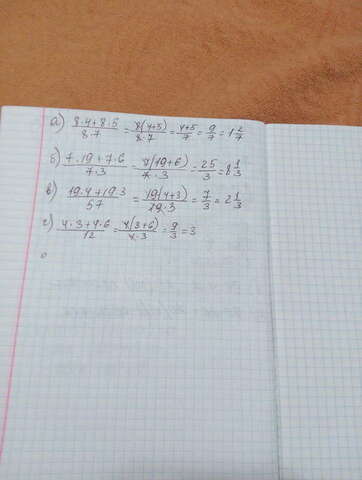 а) 8·4+8·5/8·7 = 8(4+5)/8·7 = 4+5/7 = 9/7 = 1 2/7
б) 7·19+7·6/7·3 = 7(19+6)/7·3 = 25/3 = 8 1/3
в) 19·4+19·3/57 = 19(4+3)/19·3 = 7/3 = 2 1/3
г) 4·3+4·6/12 = 4(3+6)/4·3 = 9/3 = 3